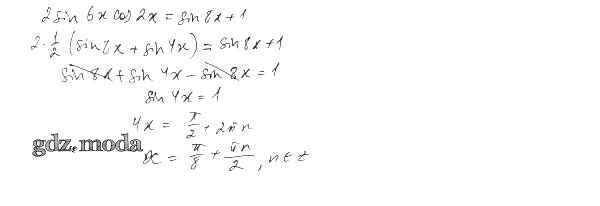 2 sin 6x cos 2x = sin 8x + 1
2 · 1/2 (sin 8x + sin 4x) = sin 8x + 1
sin 8x + sin 4x - sin 8x = 1
sin 4x = 1
4x = π/2 + 2πn
gdz.moda
x = π/8 + πn/2, n ∈ z